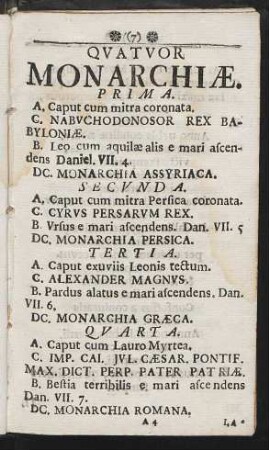 (7)
QVATVOR
MONARCHIÆ.
PRIMA.
A. Caput cum mitra coronata.
C. NABVCHODONOSOR REX BA-
BYLONIÆ.
B. Leo cum aquilæ alis e mari ascen-
dens Daniel. VII. 4.
DC. MONARCHIA ASSYRIACA.
SECVNDA.
A. Caput cum mitra Persica coronata.
C. CYRVS PERSARVM REX.
B. Vrsus e mari ascendens. Dan. VII. 5
DC. MONARCHIA PERSICA.
TERTIA.
A. Caput exuviis Leonis tectum.
C. ALEXANDER MAGNVS.
B. Pardus alatus e mari ascendens, Dan.
VII. 6.
DC. MONARCHIA GRÆCA.
QVARTA.
A. Caput cum Lauro Myrtea.
C. IMP. CAI. JVL. CÆSAR. PONTIF.
MAX. DICT. PERP. PATER PATRIÆ.
B. Bestia terribilis e mari ascendens
Dan. VII. 7.
DC. MONARCHIA ROMANA.
A 4